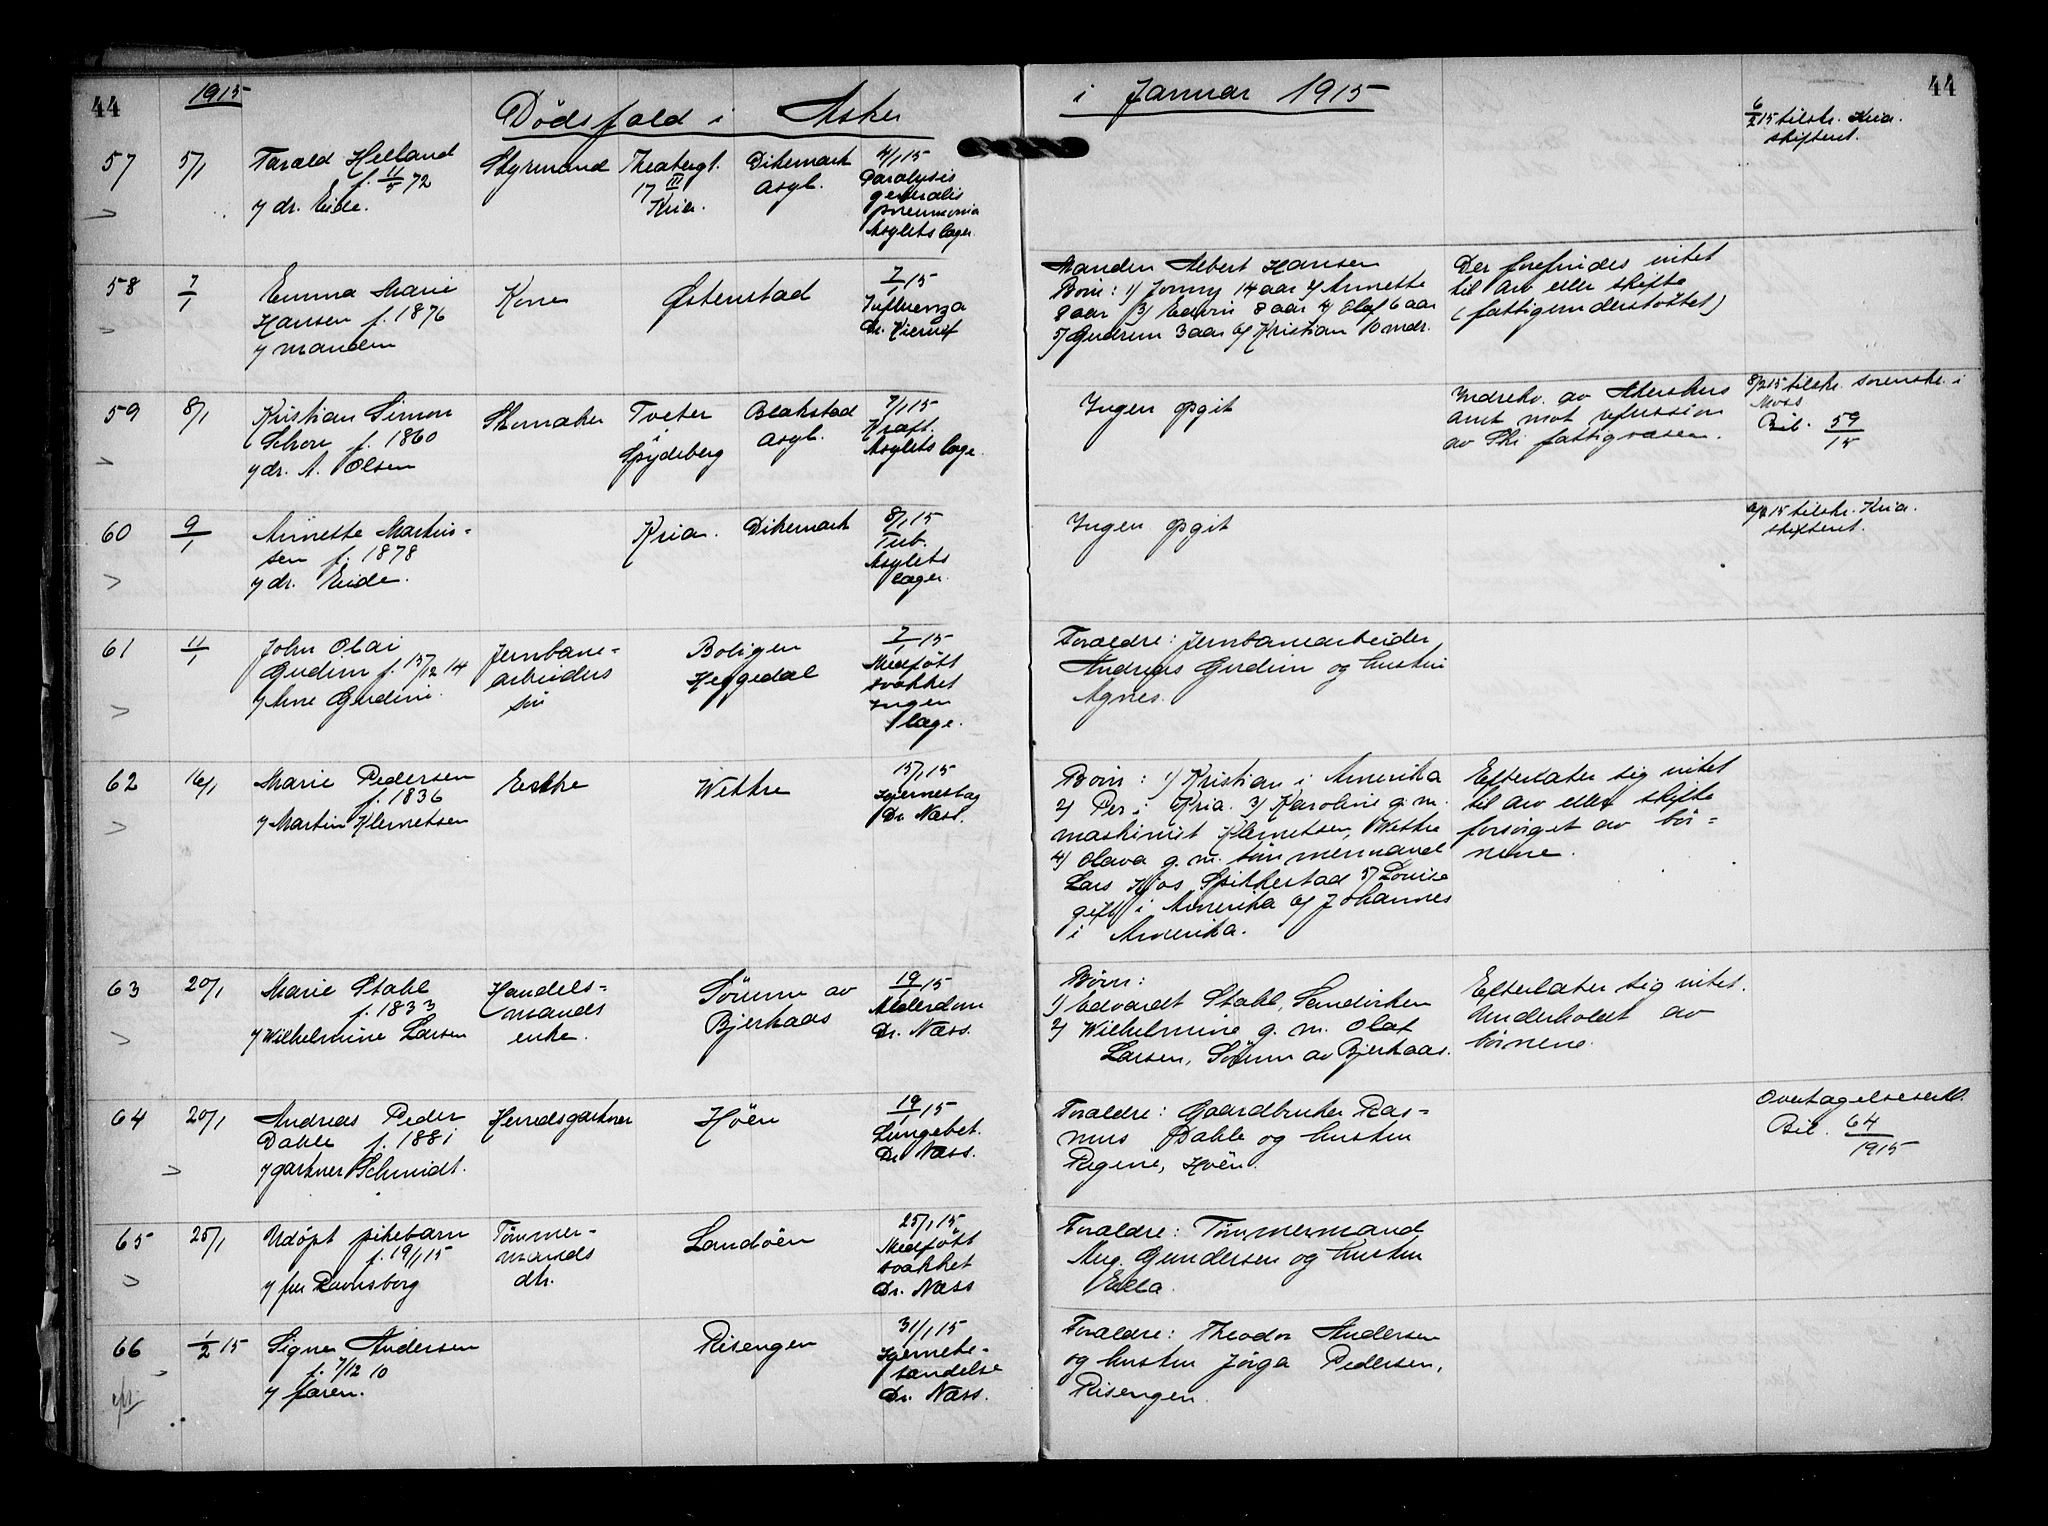 44
1915
Dödsfald i Asker
i Januar 1915
44
57
5/1
Tarald Helland
f. 11/5 72
v/ dr. Eide.
Styrmand
Theabergt.
17 III
Kria.
Dikemark
asyl.
4/1 15
Paralysis
generalis
pneumonia
Asylets læge.
6/2 15 tilskr. Kria.
skifteret.
58
7/1
Emma Marie
Hansen f. 1876
v/ manden
Kone
Østenstad
7/1 15
Influenza
Dr. Kierulf
Manden Albert Hansen
Börn: 1/ Jonny 14 aar 2/ Annette
8 aar 3/ Edvin 8 aar 4/ Olaf 6 aar
5/ Gudrun 3 aar 6/ Kristian 10 mdr.
Der forefindes intet
til arv eller skifte
(fattigunderstöttet)
59
8/1
Kristian Simon
f. 1860
v/ dr. A. Olsen
Skomaker
Tveter
Spydeberg
Blakstad
asyl.
7/1 15
Kræft.
Asylets læge.
Ingen opgit
Indrekv. av Akershus
amt mot refussion
av Ski fattigvæsen.
8/2 15 tilskr. sorenskr. i
Moss
Bil. 59/15
60
9/1
Annette Martin-
sen f. 1878
v/ dr. Eide.
Kria.
Dikemark
8/1 15
Tub.
Asylets
læge.
Ingen opgit
15 tilskr. Kria.
skifteret.
61
11/1
John Olai
Gudim f. 15/12 14
v/ Arne Gudim.
Jernbane-
arbeiders
sön
Boligen
Heggedal
7/1 15
Medfött
svakhet
Ingen
læge.
Foraldre: Jernbanearbeider
Andreas Gudim og hustru
Agnes.
62
16/1
Marie Pedersen
f. 1836
v/ Martin Klemetsen
Enke
Wettre
15/1 15
Hjerneslag
Dr. Næss.
Börn: 1/ Kristian i Amerika
2/ Per i Kria. 3/ Karoline g. m.
maskinist Klemetsen, Wettre
4/ Olava g. m. tömmermand
Lars Kjos Spikkestad 5/ Louise
gift i Amerika 6/ Johannes
i Amerika.
Efterlater sig intet
til arv eller skifte
forsörget av bör-
nene.
63
20/1
Marie Stahl
f. 1833
v/ Wilhelmine Larsen
Handels-
mands
enke.
Sörum av
Bjerkaas
19/1 15
Alderdom
Dr. Næss.
Börn:
1/ Edvardt Stahl, Sandviken
2/ Wilhelmine g. m. Olaf
Larsen, Sörum av Bjerkaas.
Efterlater sig intet.
Underholdt av
börnene.
64
20/1
Andreas Peder
Dahle f. 1881
v/ gartner Schmidt.
Herredsgartner
Höen
19/1 15
Lungebet.
Dr. Næss.
Foraldre: Gaardbruker Ras-
mus Dahle og hustru
Regine, Höen.
Overtagelseserkl.
Bil. 64/1915
65
25/1
Udöpt pikebarn
f. 19/1 15
v/ fru Ravnsborg
Tömmer-
mands
dtr.
Landöen
25/1 15
Medfött
svakhet
Dr. Næss
Foraldre: Tömmermand
Aug. Gundersen og hustru
Ella.
66
1/2 15
Signe Andersen
f. 7/12 10
v/ faren.
Risengen
31/1 15
Hjernebe-
tændelse
Dr. Næss.
Foraldre: Theodor Andersen
og hustru Jörga Pedersen,
Risengen.